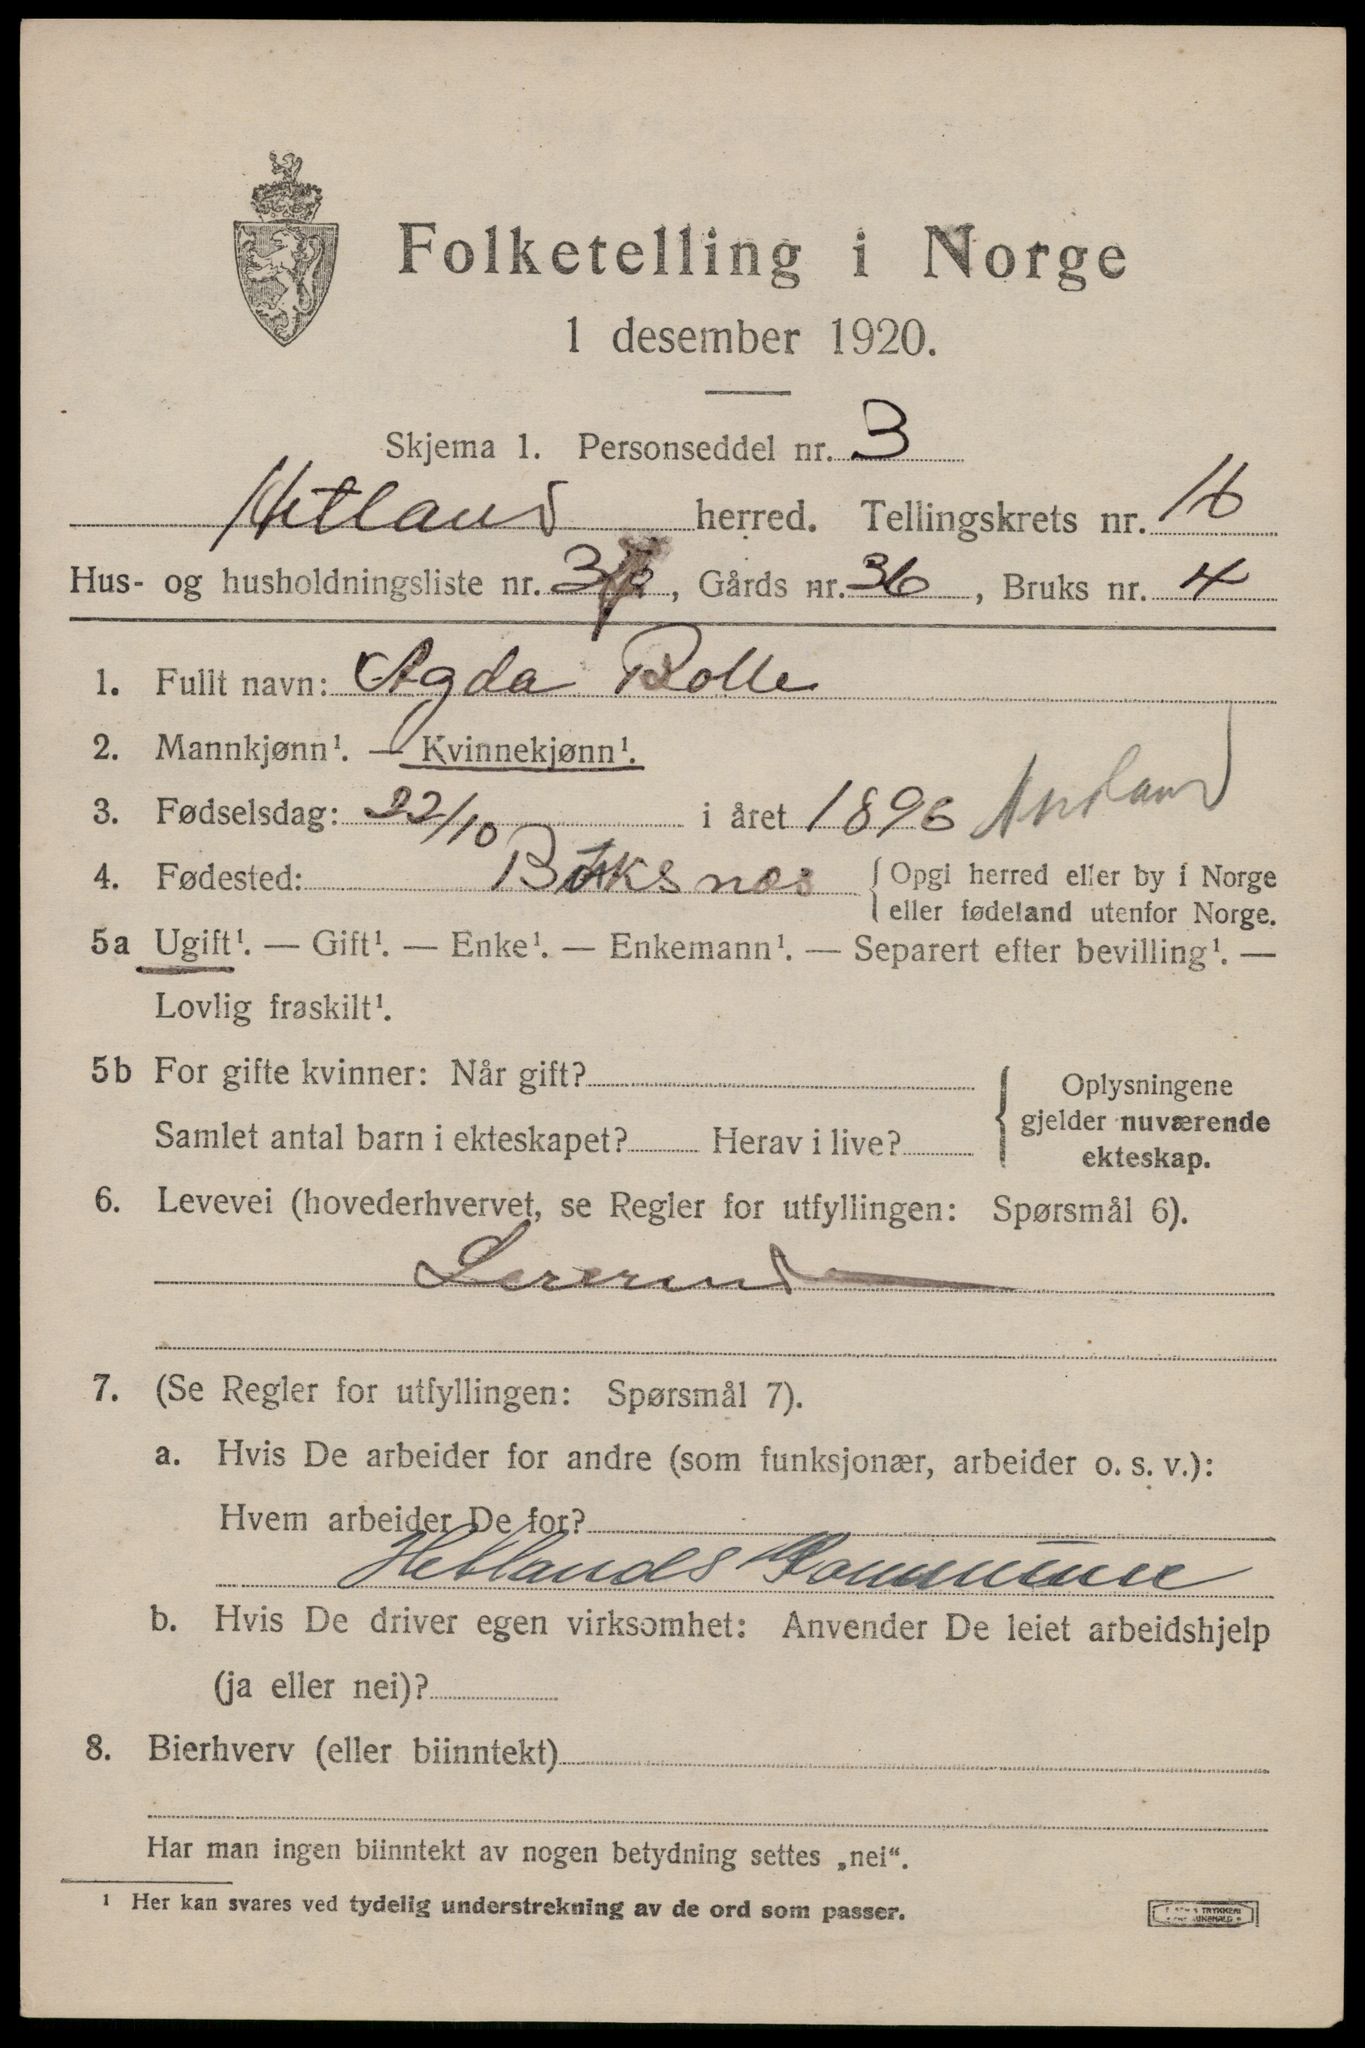 Folketelling i Norge
1 desember 1920.
Skjema 1. Personseddel nr. 3
Hetland herred. Tellingskrets nr. 16
Hus- og husholdningsliste nr. 3, Gårds nr. 36, Bruks nr. 4
1. Fullt navn: Agda Rolle
2. Mannkjønn¹. — Kvinnekjønn¹.
3. Fødselsdag: 22/10 i året 1896 Nordland
4. Fødested: Buksnes { Opgi herred eller by i Norge
eller fødeland utenfor Norge.
5a Ugift¹. — Gift¹. — Enke¹. — Enkemann¹. — Separert efter bevilling¹. —
Lovlig fraskilt¹.
5b For gifte kvinner: Når gift? { Oplysningene
gjelder nuværende
Samlet antal barn i ekteskapet? Herav i live?
ekteskap.
6. Levevei (hovederhvervet, se Regler for utfyllingen: Spørsmål 6).
Lererind
7. (Se Regler for utfyllingen: Spørsmål 7).
a. Hvis De arbeider for andre (som funksjonær, arbeider o. s. v.):
Hvem arbeider De for?
Hetlands Kommune
b. Hvis De driver egen virksomhet: Anvender De leiet arbeidshjelp
(ja eller nei)?
8. Bierhverv (eller biinntekt)
Har man ingen biinntekt av nogen betydning settes „nei“.
¹ Her kan svares ved tydelig understrekning av de ord som passer.